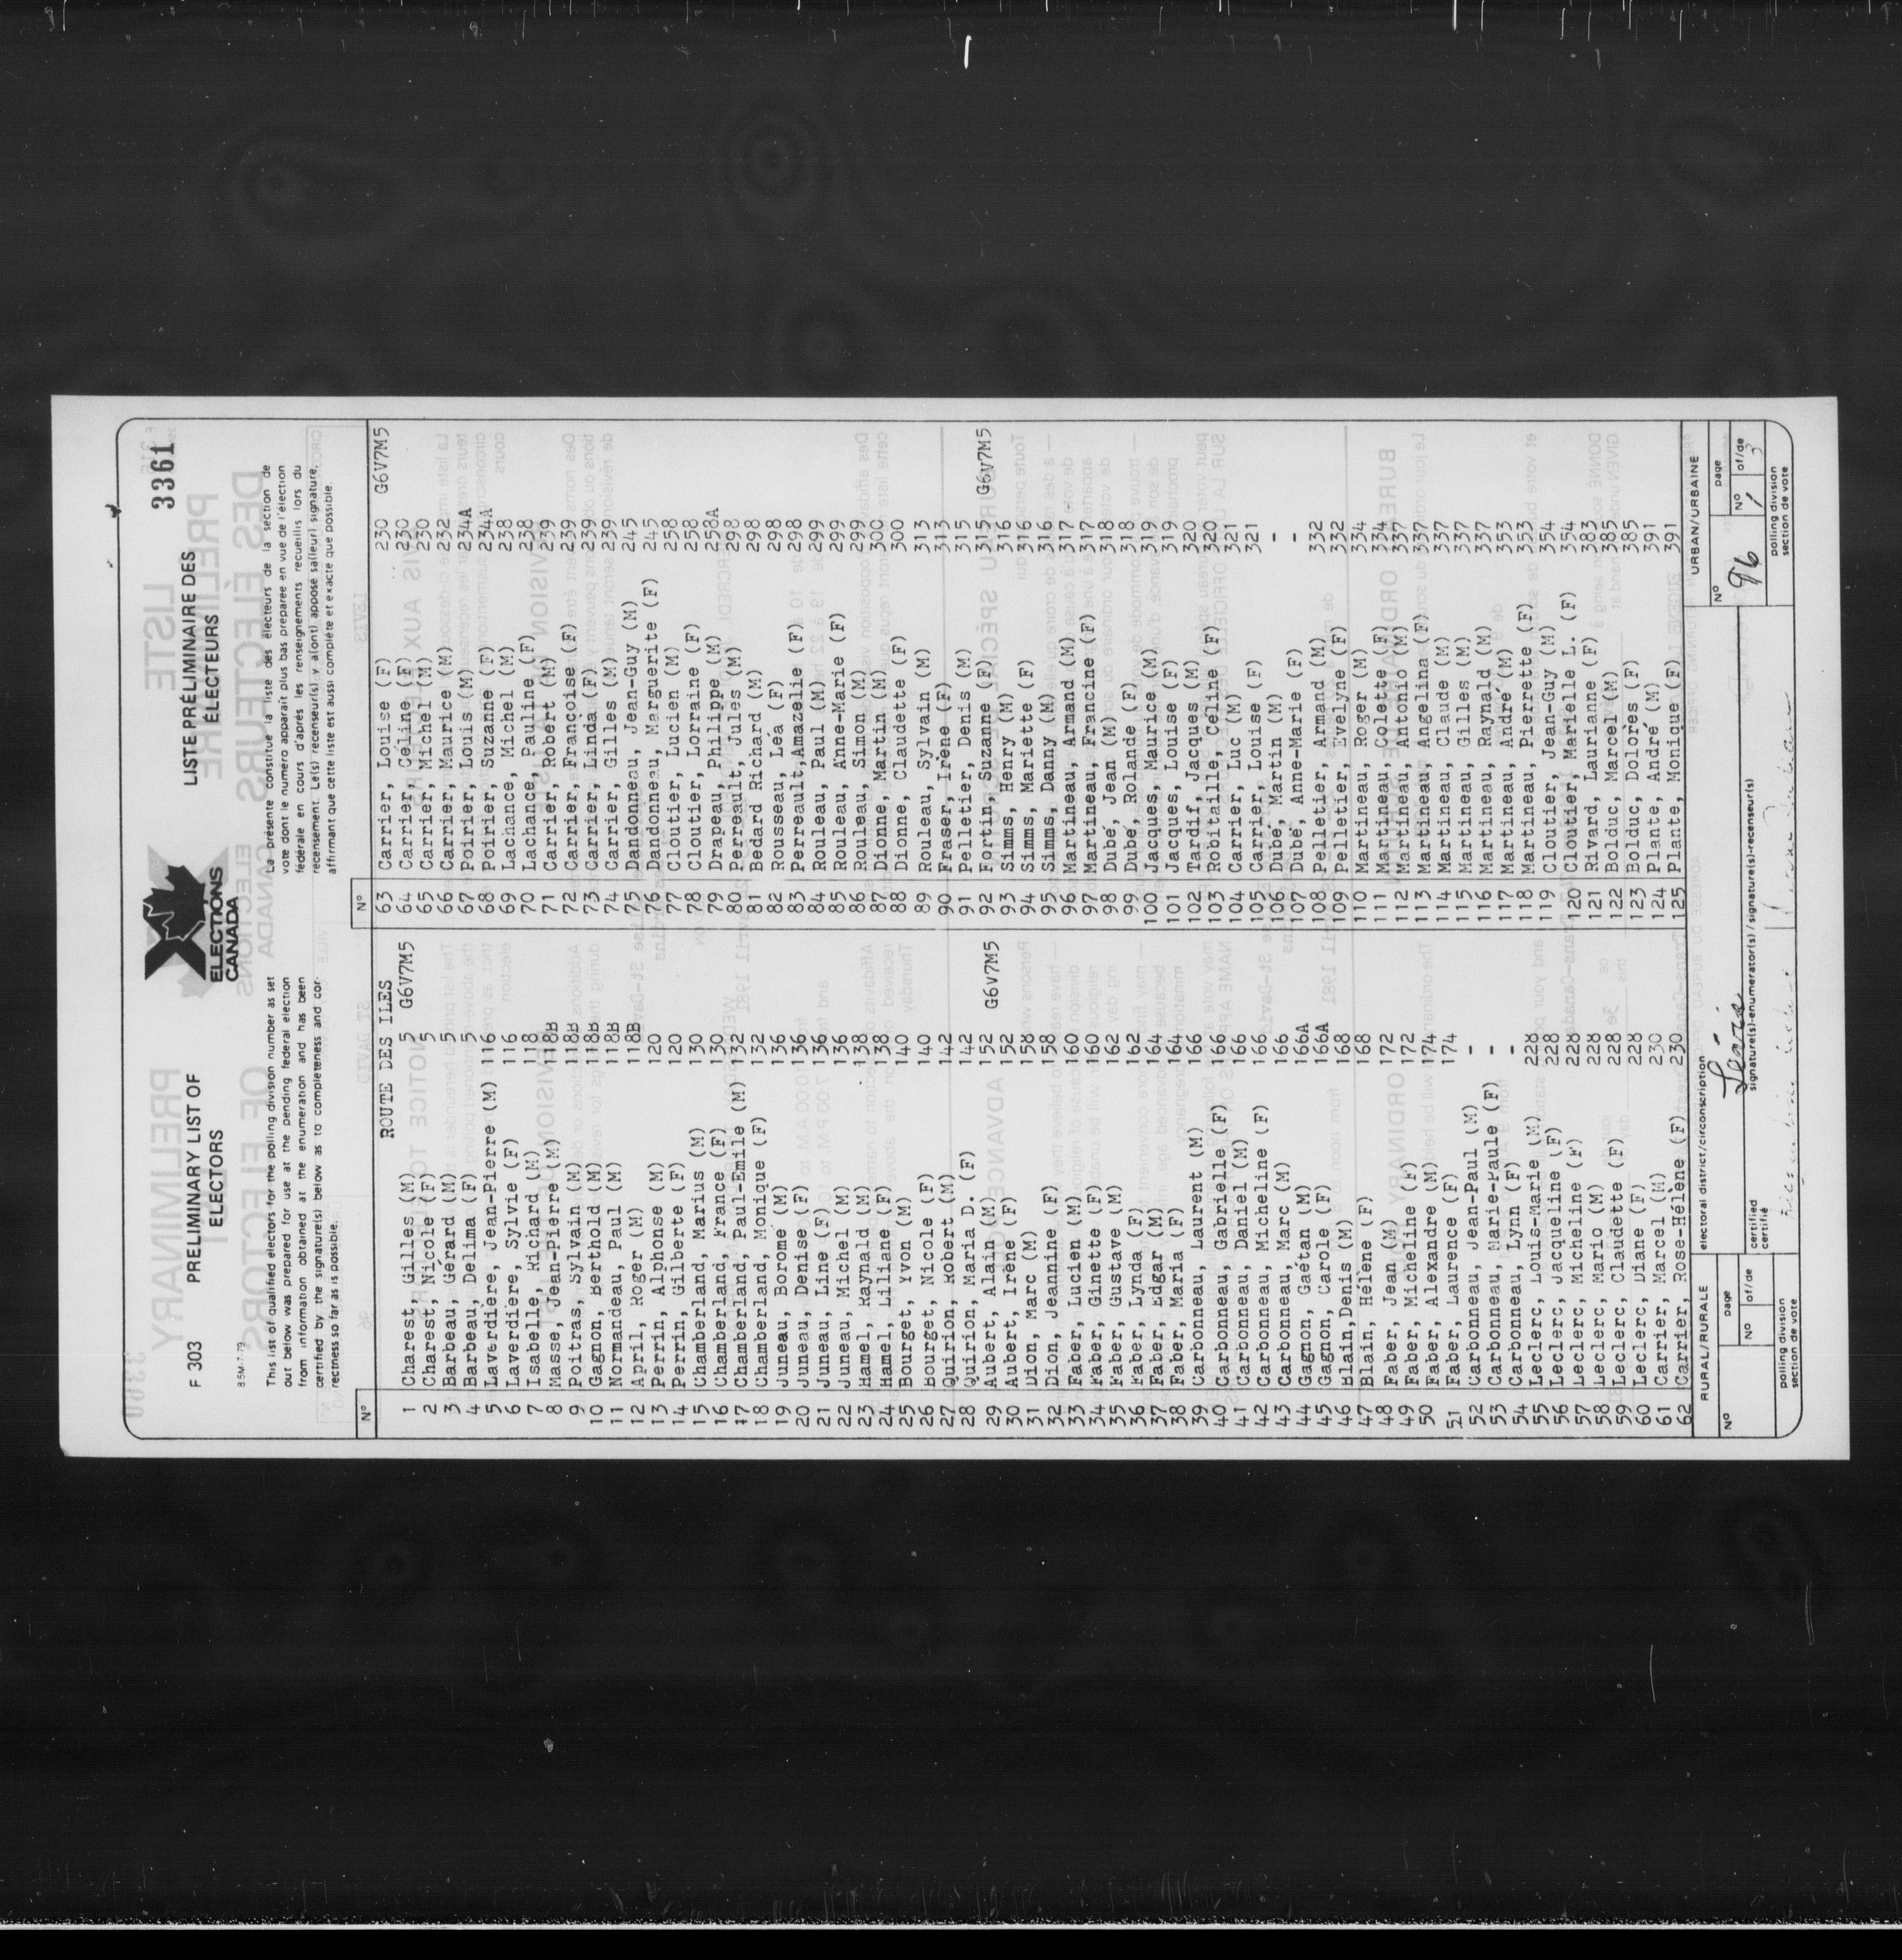 F 303
PRELIMINARY LIST OF
ELECTORS
85M-7-79
ELECTIONS
CANADA
LISTE PRÉLIMINAIRE DES
ÉLECTEURS
3361
This list of qualified electors for the polling division number as set
out below was prepared for use at the pending federal election
from information obtained at the enumeration and has been
certified by the signature(s) below as to completeness and cor-
rectness so far as is possible.
La présente constitue la liste des électeurs de la section de
vote dont le numéro apparaît plus bas préparée en vue de l'élection
fédérale en cours d'après les renseignements recueillis lors du
recensement. Le(s) recenseur(s) y a(ont) apposé sa(leur) signature,
affirmant que cette liste est aussi complète et exacte que possible.
Nº
ROUTE DES ILES
1 Charest, Gilles (M) 5 G6V7M5
2 Charest, Nicole (F) 5
3 Barbeau, Gérard (M) 5
4 Barbeau, Delima (F) 5
5 Laverdière, Jean-Pierre (M) 116
6 Laverdière, Sylvie (F) 116
7 Isabelle, Richard (M) 118
8 Masse, Jean-Pierre (M) 118B
9 Poitras, Sylvain (M) 118B
10 Gagnon, Berthold (M) 118B
11 Normandeau, Paul (M) 118B
12 April, Roger (M) 118B
13 Perrin, Alphonse (M) 120
14 Perrin, Gilberte (F) 120
15 Chamberland, Marius (M) 130
16 Chamberland, France (F) 130
17 Chamberland, Paul-Emile (M) 132
18 Chamberland, Monique (F) 132
19 Juneau, Borome (M) 136
20 Juneau, Denise (F) 136
21 Juneau, Line (F) 136
22 Juneau, Michel (M) 136
23 Hamel, Raynald (M) 138
24 Hamel, Liliane (F) 138
25 Bourget, Yvon (M) 140
26 Bourget, Nicole (F) 140
27 Quirion, Robert (M) 142
28 Quirion, Maria D. (F) 142
29 Aubert, Alain (M) 152 G6V7M5
30 Aubert, Irène (F) 152
31 Dion, Marc (M) 158
32 Dion, Jeannine (F) 158
33 Faber, Lucien (M) 160
34 Faber, Ginette (F) 160
35 Faber, Gustave (M) 162
36 Faber, Lynda (F) 162
37 Faber, Edgar (M) 164
38 Faber, Maria (F) 164
39 Carbonneau, Laurent (M) 166
40 Carbonneau, Gabrielle (F) 166
41 Carbonneau, Daniel (M) 166
42 Carbonneau, Micheline (F) 166
43 Carbonneau, Marc (M) 166
44 Gagnon, Gaétan (M) 166A
45 Gagnon, Carole (F) 166A
46 Blain,Denis (M) 168
47 Blain, Hélène (F) 168
48 Faber, Jean (M) 172
49 Faber, Micheline (F) 172
50 Faber, Alexandre (M) 174
51 Faber, Laurence (F) 174
52 Carbonneau, Jean-Paul (M) -
53 Carbonneau, Marie-Paule (F) -
54 Carbonneau, Lynn (F) -
55 Leclerc, Louis-Marie (M) 228
56 Leclerc, Jacqueline (F) 228
57 Leclerc, Micheline (F) 228
58 Leclerc, Mario (M) 228
59 Leclerc, Claudette (F) 228
60 Leclerc, Diane (F) 228
61 Carrier, Marcel (M) 230
62 Carrier, Rose-Hélène (F) 230
Nº
63 Carrier, Louise (F) 230 G6V7M5
64 Carrier, Céline (F) 230
65 Carrier, Michel (M) 230
66 Carrier, Maurice (M) 232
67 Poirier, Louis (M) 234A
68 Poirier, Suzanne (F) 234A
69 Lachance, Michel (M) 238
70 Lachance, Pauline (F) 238
71 Carrier, Robert (M) 239
72 Carrier, Françoise (F) 239
73 Carrier, Linda (F) 239
74 Carrier, Gilles (M) 239
75 Dandonneau, Jean-Guy (M) 245
76 Dandonneau, Marguerite (F) 245
77 Cloutier, Lucien (M) 258
78 Cloutier, Lorraine (F) 258
79 Drapeau, Philippe (M) 258A
80 Perreault, Jules (M) 298
81 Bedard Richard (M) 298
82 Rousseau, Léa (F) 298
83 Perreault,Amazelie (F) 298
84 Rouleau, Paul (M) 299
85 Rouleau, Anne-Marie (F) 299
86 Rouleau, Simon (M) 299
87 Dionne, Martin (M) 300
88 Dionne, Claudette (F) 300
89 Rouleau, Sylvain (M) 313
90 Fraser, Irène (F) 313
91 Pelletier, Denis (M) 315
92 Fortin, Suzanne (F) 315 G6V7M5
93 Simms, Henry (M) 316
94 Simms, Mariette (F) 316
95 Simms, Danny (M) 316
96 Martineau, Armand (M) 317
97 Martineau, Francine (F) 317
98 Dubé, Jean (M) 318
99 Dubé, Rolande (F) 318
100 Jacques, Maurice (M) 319
101 Jacques, Louise (F) 319
102 Tardif, Jacques (M) 320
103 Robitaille, Céline (F) 320
104 Carrier, Luc (M) 321
105 Carrier, Louise (F) 321
106 Dubé, Martin (M) -
107 Dubé, Anne-Marie (F) -
108 Pelletier, Armand (M) 332
109 Pelletier, Evelyne (F) 332
110 Martineau, Roger (M) 334
111 Martineau, Colette (F) 334
112 Martineau, Antonio (M) 337
113 Martineau, Angelina (F) 337
114 Martineau, Claude (M) 337
115 Martineau, Gilles (M) 337
116 Martineau, Raynald (M) 337
117 Martineau, André (M) 353
118 Martineau, Pierrette (F) 353
119 Cloutier, Jean-Guy (M) 354
120 Cloutier, Marielle L. (F) 354
121 Rivard, Laurianne (F) 383
122 Bolduc, Marcel (M) 385
123 Bolduc, Dolores (F) 385
124 Plante, André (M) 391
125 Plante, Monique (F) 391
RURAL/RURALE
Nº
page
Nº of/de
polling division
section de vote
electoral district/circonscription
certified
certifié
signature(s)-enumerator(s) / signature(s)-recenseur(s)
URBAN/URBAINE
Nº
96
page
Nº 1 of/de 3
polling division
section de vote